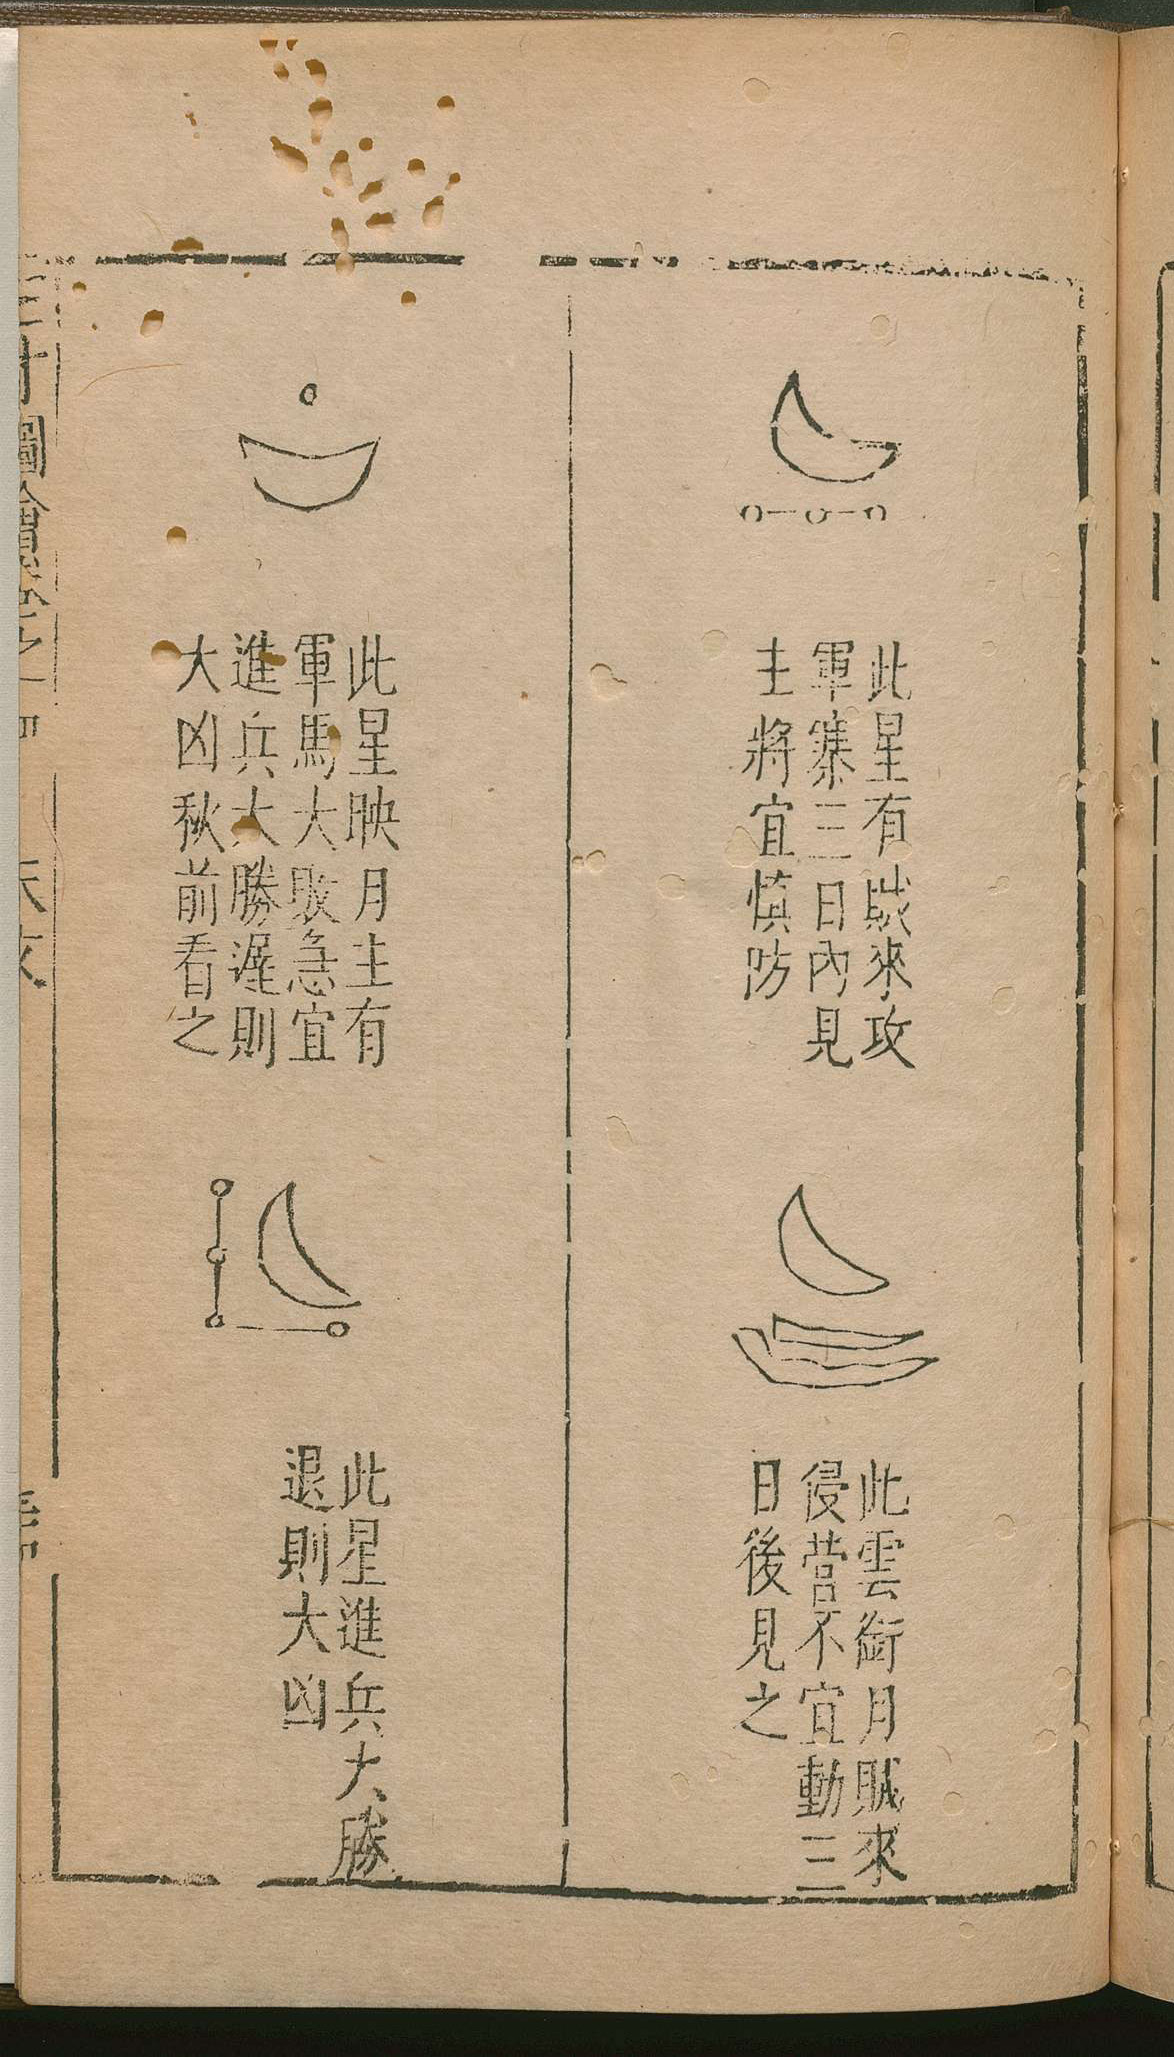 此星有賊來攻
軍寨三日內見
主將宜慎防
此雲銜月賊來
侵營不宜動三
日後見之
此星映月主有
軍馬大敗急宜
進兵大勝遲則
大凶秋前看之
此星進兵大勝
退則大凶
圖會